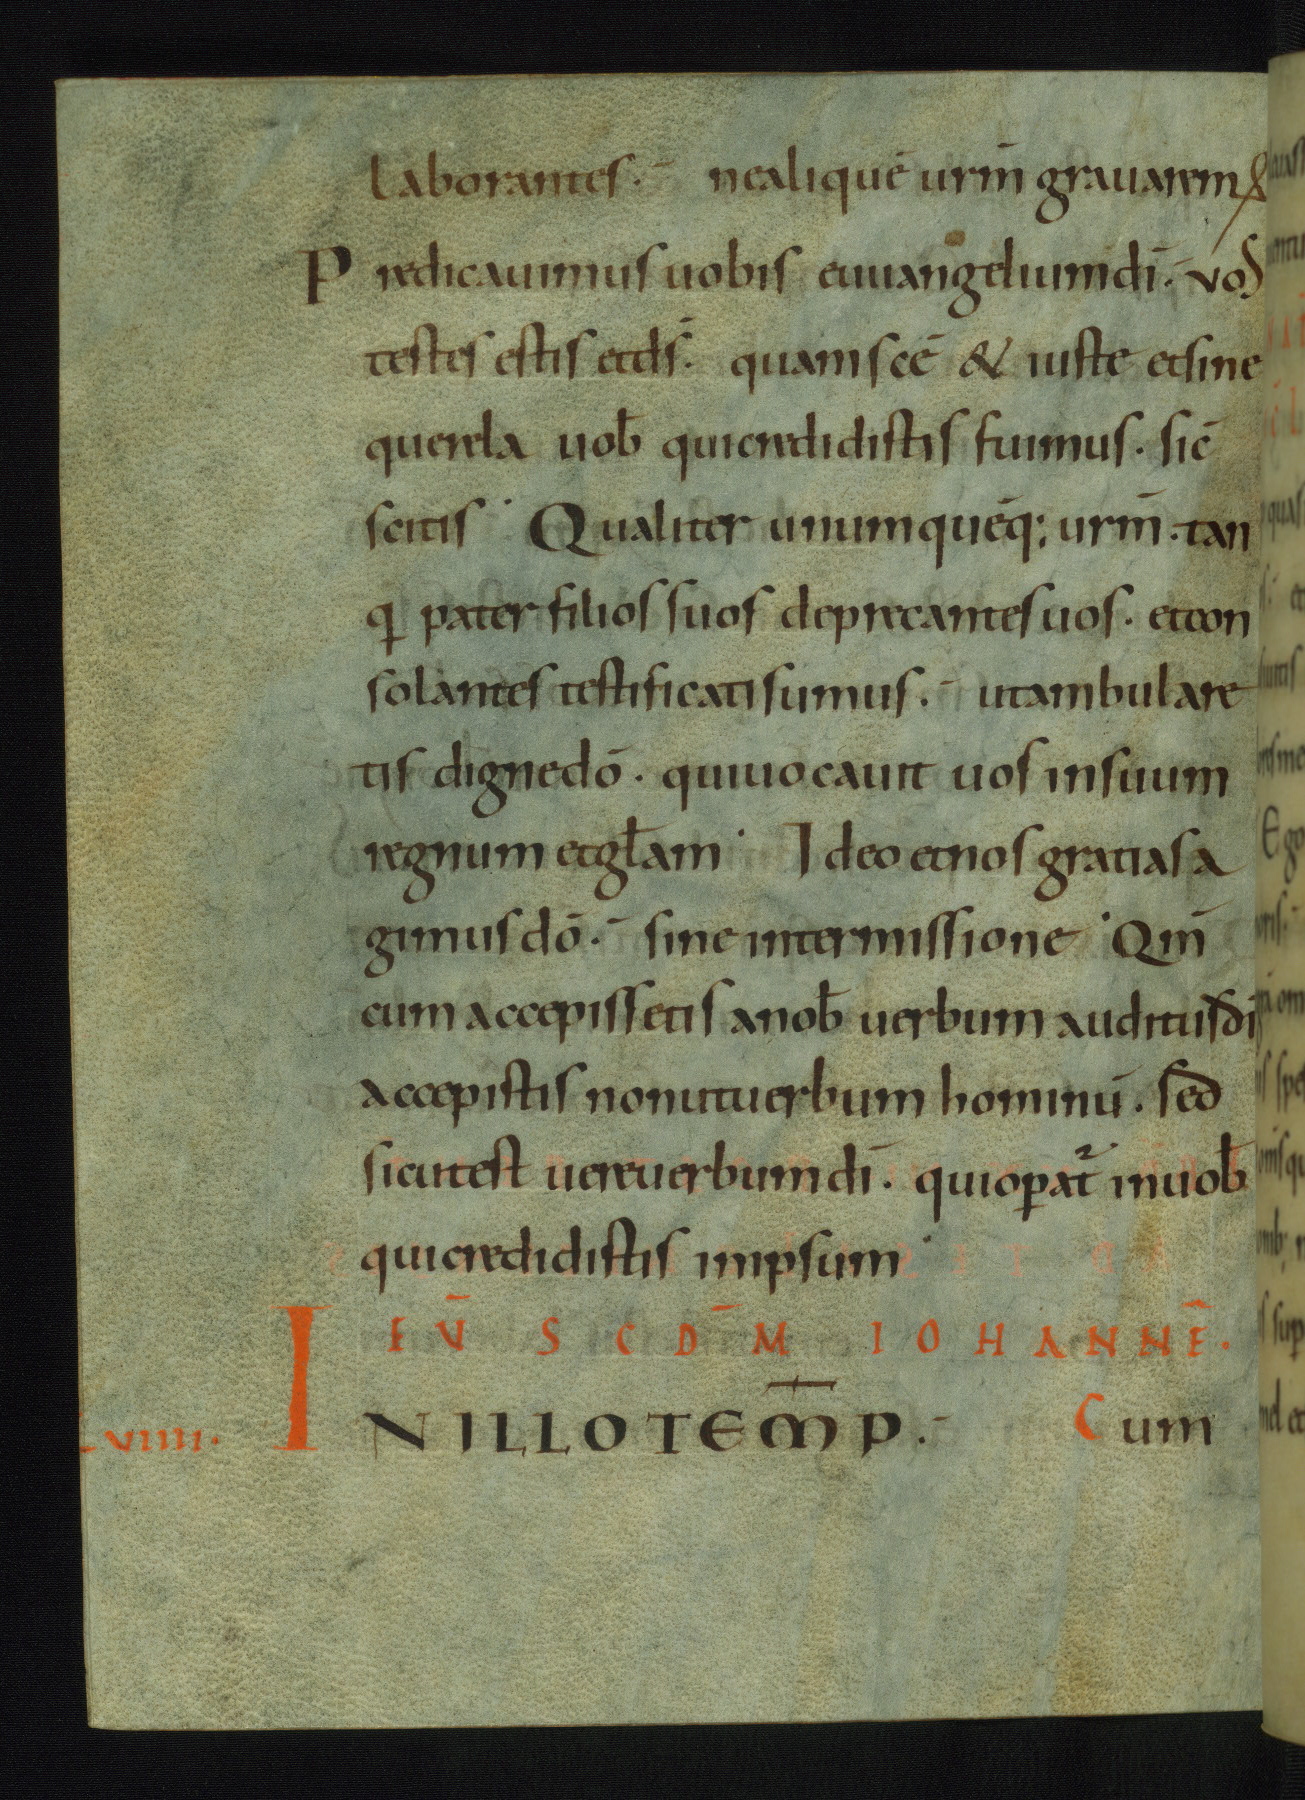 laborantes· nealiquē urm̄ grauarem&
Predicauimus uobis euuangeliumdī· vos
testes estis etds̄· quamscē & iuste etsine
querela uob̄ quicredidistis fuimus· sic̄
scitis· Qualiter unumquēq; urm̄·tan
qͣ pater filios suos deprecantesuos· etcon
solantes testificatisumus· utambulare
tis dignedō· quiuocauit uos insuum
regnum etgl̄am· Ideo etnos gratiasa
gimusdō· sine intermissione· Qm̄
cum accepissetis anob̄ uerbum auditusdī
accepistis nonutuerbum hominū· sed
sicutest uereuerbumdī· quiopat̄ inuob̄
quicredidistis inipsum·
EV̄ SCDM̄ IOHANNE̅·
Lviiii· INILLOTEM̄P· Cum